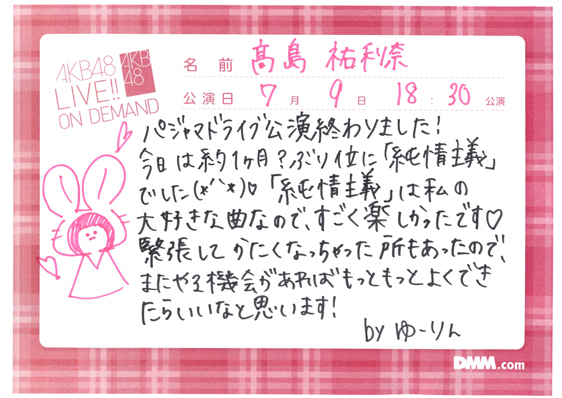 AKB48
LIVE!!
ON DEMAND
AKB
48
名前 髙島 祐利奈
公演日 7月 9日 18:30 公演
パジャマドライブ公演終わりました!
今日は約1ヶ月?ぶり位に「純情主義」
でした(*´`*)♡「純情主義」は私の
大好きな曲なので、すごく楽しかったです♡
緊張してかたくなっちゃった所もあったので、
またやる機会があればもっともっとよくでき
たらいいなと思います!
by ゆーりん
DMM.com